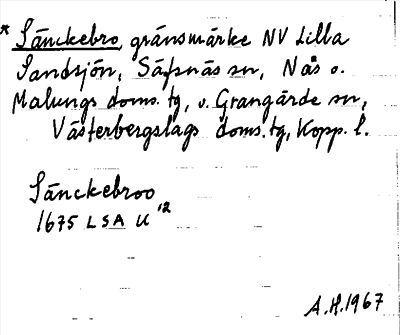 * Sänckebro, gränsmärke NV Lilla
Sandsjön, Säfsnäs sn, Nås o.
Malungs doms. tg, o. Grangärde sn,
Västerbergslags doms. tg, Kopp. l.
Sänckebroo
1675 LSA U 12
A.H. 1967